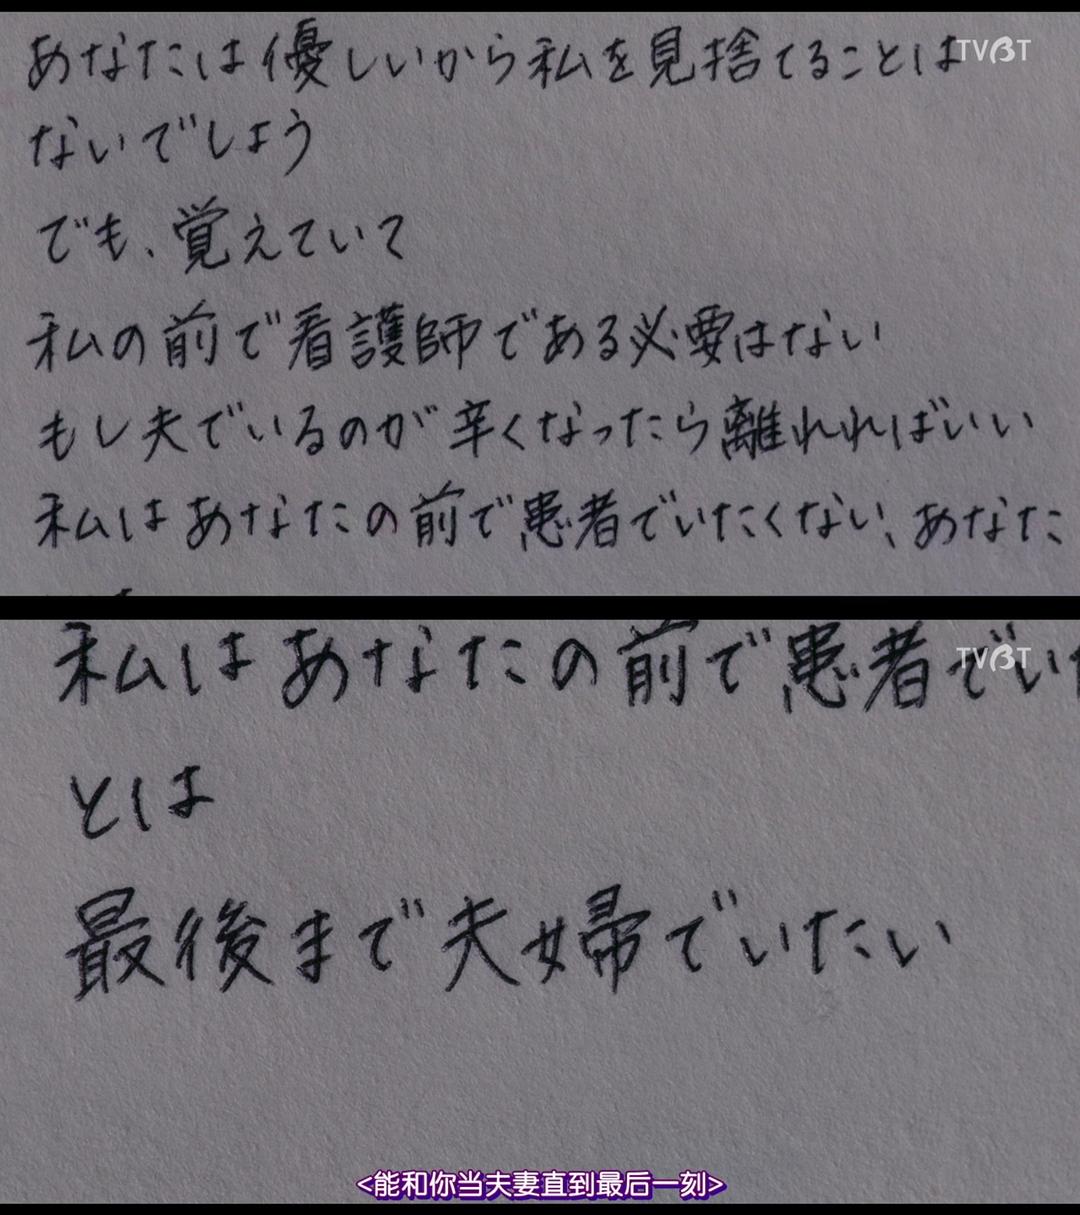 あなたは優しいから私を見捨てることは
TVBT
ないでしょう
でも、覚えていて
私の前で看護師である必要はない
もし夫でいるのが辛くなったら離れればいい
私はあなたの前で患者でいたくない、あなた
私はあなたの前で患者でいた
TVBT
とは
最後まで夫婦でいたい
<能和你当夫妻直到最后一刻>